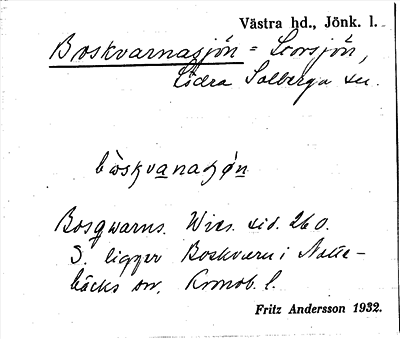 Västra hd., Jönk. l.
Boskvarnasjön = Storsjön,
Södra Solberga sn.
Bosqwarns. Wies. sid. 260.
S. ligger Boskvarn i Notte-
bäcks sn. Kronob. l.
Fritz Andersson 1932.